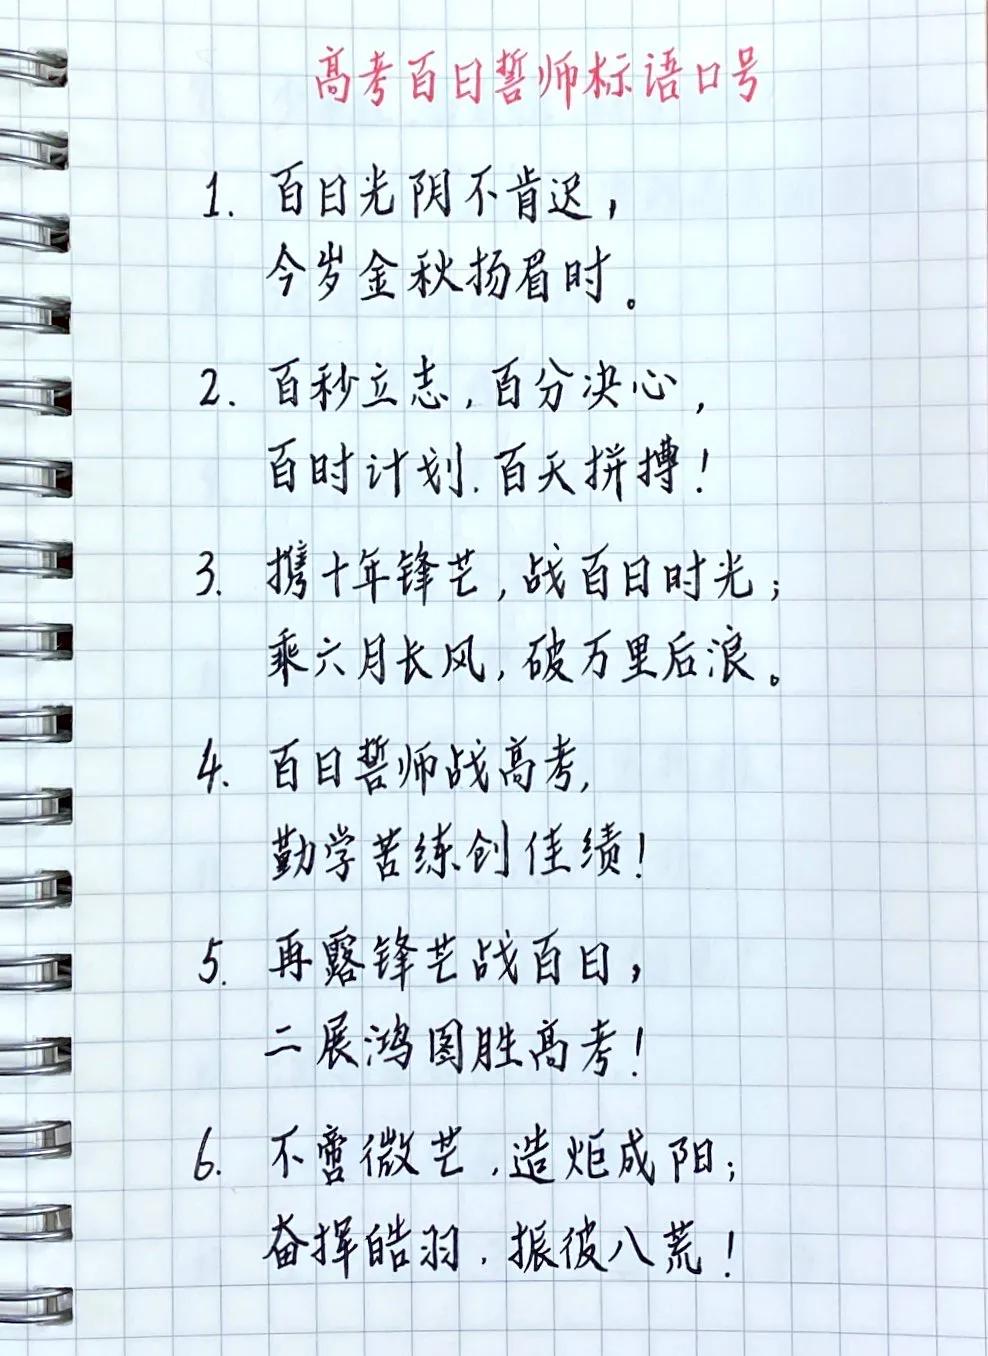 高考百日誓师标语口号
1. 百日光阴不肯迟，
今岁金秋扬眉时。
2. 百秒立志，百分决心，
百时计划，百天拼搏！
3. 携十年锋芒，战百日时光；
乘六月长风，破万里后浪。
4. 百日誓师战高考，
勤学苦练创佳绩！
5. 再露锋芒战百日，
二展鸿图胜高考！
6. 不啻微芒，造炬成阳；
奋挥皓羽，振彼八荒！